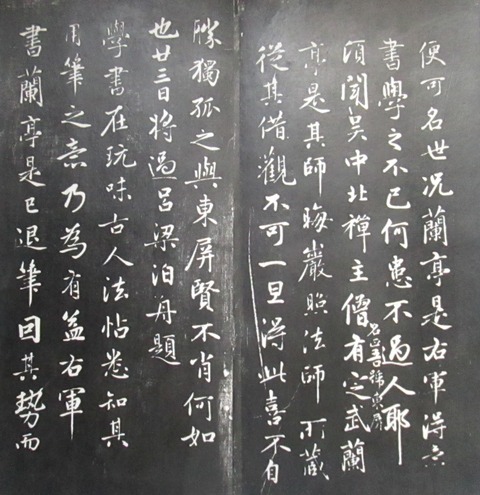 便可名世況蘭亭是右軍得意
書學之不已何患不過人耶
頃聞吳中北禪主僧有定武蘭
名正吾號東屏
亭是其師晦巖照法師所藏
從其借觀不可一旦得此喜不自
勝獨孤之與東屏賢不肖何如
也廿三日將過呂梁泊舟題
學書在玩味古人法帖悉知其
用筆之意乃為有益右軍
書蘭亭是已退筆因其勢而